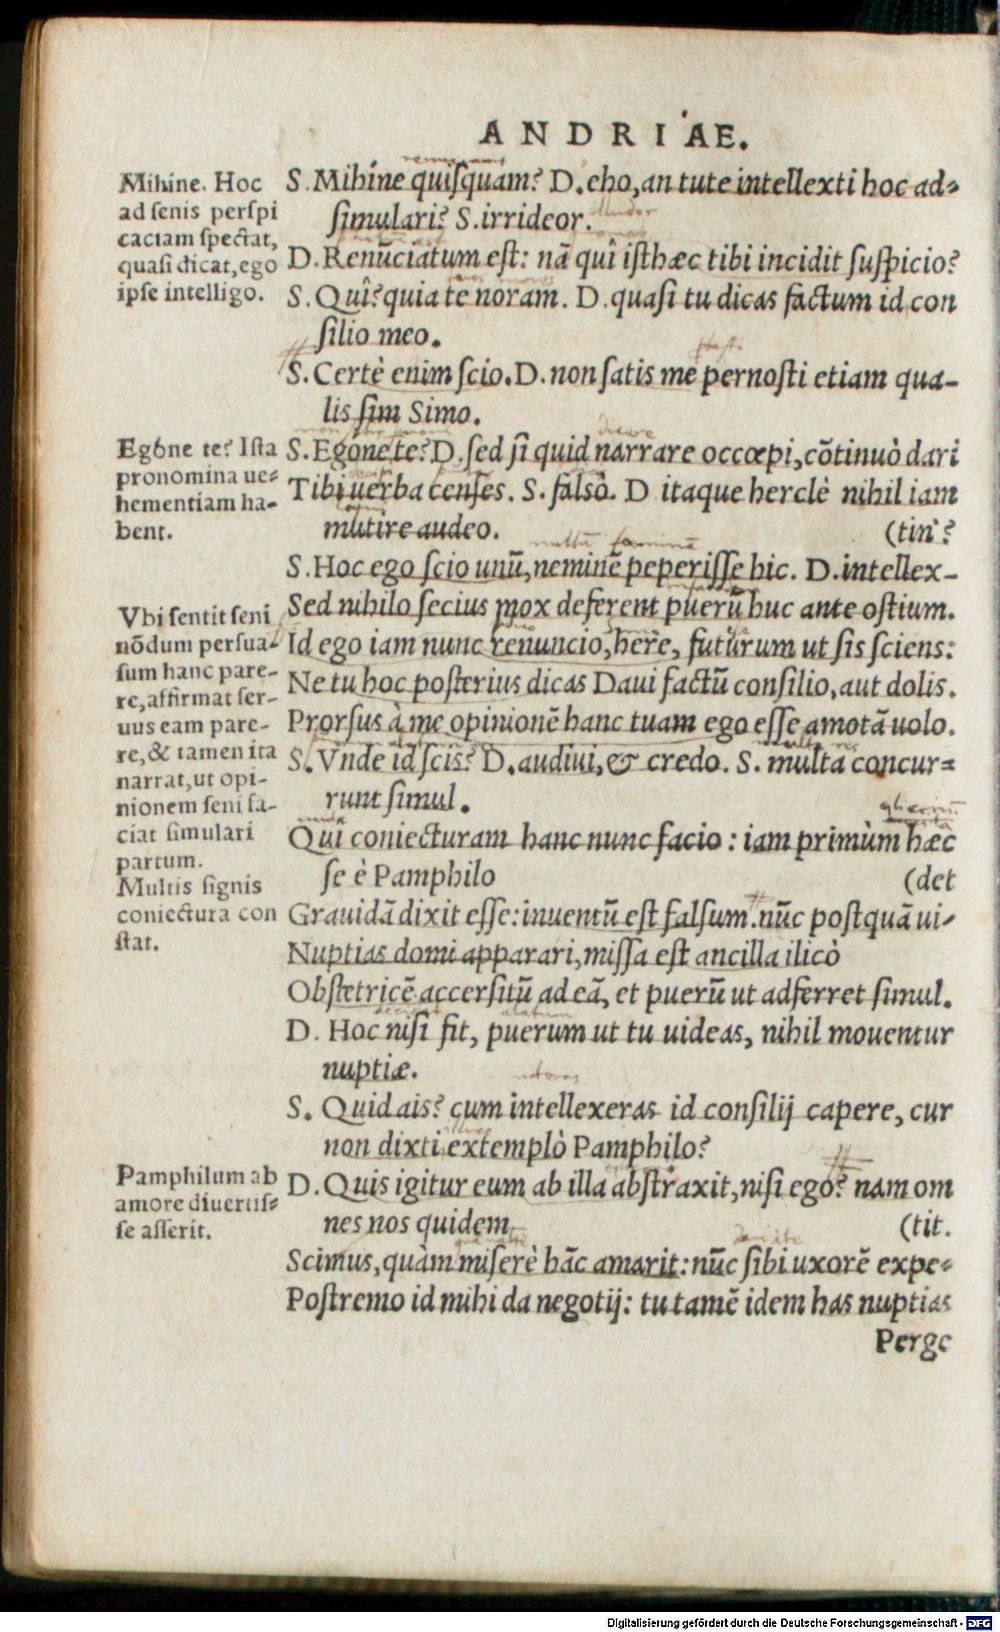 ANDRIAE.
Mihine. Hoc
ad senis perspi
caciam spectat,
quasi dicat, ego
ipse intelligo.
S. Mihíne quisquam? D. eho, an tute intellexti hoc ad-
simulari? S. irrideor.
D. Renũciatum est: nã quî isthæc tibi incidit suspicio?
S. Quî? quia te noram. D. quasi tu dicas factum id con
silio meo.
S. Certè enim scio. D. non satis me pernosti etiam qua-
lis sim Simo.
Egóne te? Ista
pronomina ue-
hementiam ha-
bent.
S. Egóne te? D. sed si quid narrare occœpi, cõtinuò dari
Tibi uerba censes. S. falsò. D itaque herclè nihil iam
mutire audeo. (tin'?
S. Hoc ego scio unũ, neminẽ peperisse hic. D. intellex-
Vbi sentit seni
nõdum persua-
sum hanc pare-
re, affirmat ser-
uus eam pare-
re, & tamen ita
narrat, ut opi-
nionem seni fa-
ciat simulari
partum.
Sed nihilo secius mox deferent puerũ huc ante ostium.
Id ego iam nunc renuncio, here, futurum ut sis sciens:
Ne tu hoc posterius dicas Daui factũ consilio, aut dolis.
Prorsus à me opinionẽ hanc tuam ego esse amotã uolo.
S. Vnde id scis? D. audiui, & credo. S. multa concur-
runt simul.
Quî coniecturam hanc nunc facio: iam primùm hæc
se è Pamphilo (det
Multis signis
coniectura con
stat.
Grauidã dixit esse: inuentũ est falsum. nũc postquã ui-
Nuptias domi apparari, missa est ancilla ilicò
Obstetricẽ accersitũ ad eã, et puerũ ut adferret simul.
D. Hoc nisi fit, puerum ut tu uideas, nihil mouentur
nuptiæ.
S. Quid ais? cum intellexeras id consilij capere, cur
non dixti extemplò Pamphilo?
Pamphilum ab
amore diuertis-
se asserit.
D. Quis igitur eum ab illa abstraxit, nisi ego? nam om
nes nos quidem (tit.
Scimus, quàm miserè hãc amarit: nũc sibi uxorẽ expe-
Postremo id mihi da negotij: tu tamẽ idem has nuptias
Perge
Digitalisierung gefördert durch die Deutsche Forschungsgemeinschaft - DFG